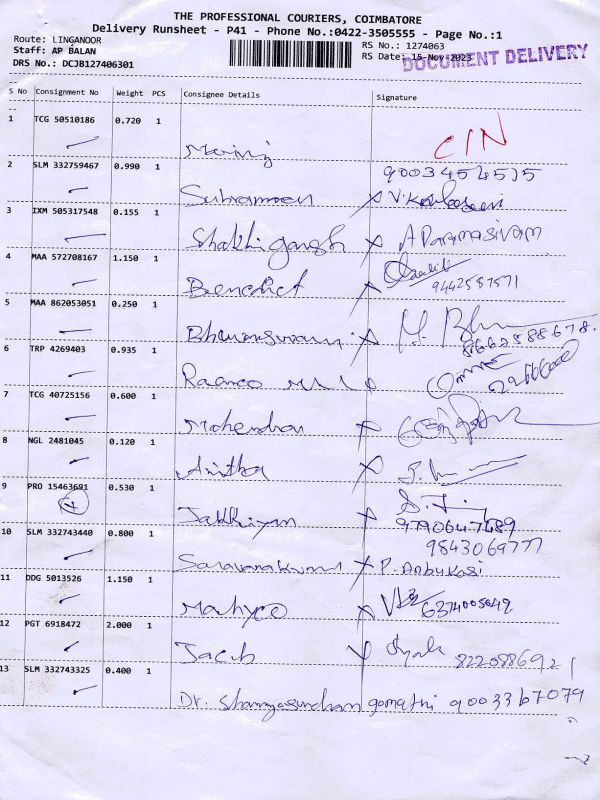 THE PROFESSIONAL COURIERS, COIMBATORE
Delivery Runsheet - P41 - Phone No.:0422-3505555 - Page No.:1
Route: LINGANOOR
Staff: AP BALAN
DRS No.: DCJB127406301
RS No.: 1274063
RS Date: 15-Nov-2023
DOCUMENT DELIVERY
S No Consignment No Weight PCS Consignee Details Signature
1 TCG 50510186 0.720 1
2 SLM 332759467 0.990 1
Subramoen
3 IXM 505317548 0.155 1
Shakhi ganesh X A Paramasivam
4 MAA 572708167 1.150 1
Benedict X
9442587571
5 MAA 862053051 0.250 1
X
6 TRP 4269403 0.935 1
Raamco
7 TCG 40725156 0.600 1
Mahendran X
8 NGL 2481045 0.120 1
Anitha X
9 PRO 15463691 0.530 1
X
9790647489
10 SLM 332743440 0.800 1
9843069777
Saravanakumar X P. Anbukasi
11 DDG 5013526 1.150 1
Mahyco X 6374005649
12 PGT 6918472 2.000 1
Jacib X 8220886921
13 SLM 332743325 0.400 1
Dr. Shanyasundham gomathi 9003367079